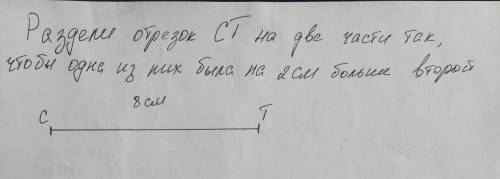 Раздели отрезок СТ на две части так,
чтобы одна из них была на 2см больше второй
8см
С Т